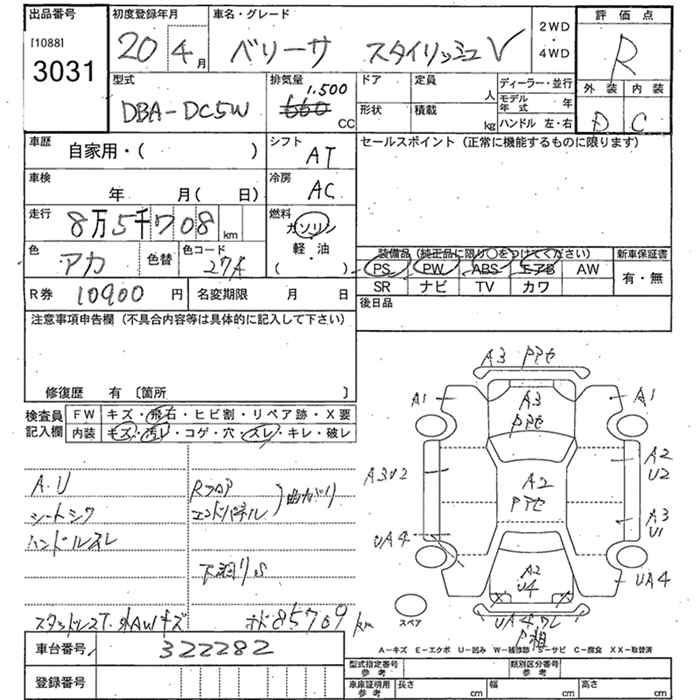 出品番号
[1088]
3031
初度登録年月
20年4月
車名・グレード
ベリーサ スタイリッシュV
2WD
・
4WD
評価点
R
外装 内装
D C
型式
DBA-DC5W
排気量
1.500
660
CC
ドア
定員
人
形状
積載
kg
ディーラー・並行
モデル年式 年
ハンドル 左・右
車歴
自家用・( )
シフト
AT
セールスポイント (正常に機能するものに限ります)
車検
年 月( 日)
冷房
AC
走行
8万5千708km
燃料
ガソリン
軽・油
( )
色
アカ
色替
色コード
27A
装備品 (純正品に限り○をつけてください)
PS PW ABS エアB AW
SR ナビ TV カワ
新車保証書
有・無
R券
10900円
名変期限 月 日
後日品
注意事項申告欄 (不具合内容等は具体的に記入して下さい)
修復歴 有 〔箇所 〕
検査員記入欄
FW キズ・飛石・ヒビ割・リペア跡・X要
内装 キズ・汚レ・コゲ・穴・スレ・キレ・破レ
A.U
シートシワ
ハンドルスレ
Rフロア
エンドパネル
曲がり
下廻りS
スタットレスT.外AWキズ
オド85709km
A3 PTセ
A1
A3
PTセ
A1
A3U2
A2
PTセ
A2
U2
A3
U1
UA4
A2
U4
UA4
UA4ワレ
P相
スペア
A-キズ E-エクボ U-凹み W-補修跡 S-サビ C-腐食 XX-取替済
車台番号
322282
登録番号
型式指定番号
参考
類別区分番号
参考
車庫証明用
参考
長さ cm 幅 cm 高さ cm